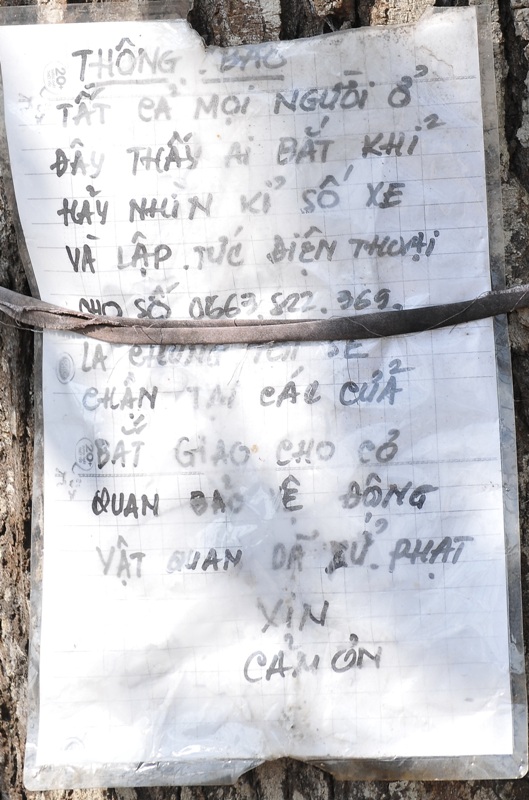 THÔNG BÁO
TẤT CẢ MỌI NGƯỜI Ở
ĐÂY THẤY AI BẮT KHỈ
HÃY NHÌN KỈ SỐ XE
VÀ LẬP TỨC ĐIỆN THOẠI
CHO SỐ 0563.822.369.
LÀ CHÚNG TÔI SẼ
CHẶN TẠI CÁC CỬA
BẮT GIAO CHO CỎ
QUAN BẢO VỆ ĐỘNG
VẬT QUAN DÃ XỬ.PHẠT
XIN
CẢM ƠN